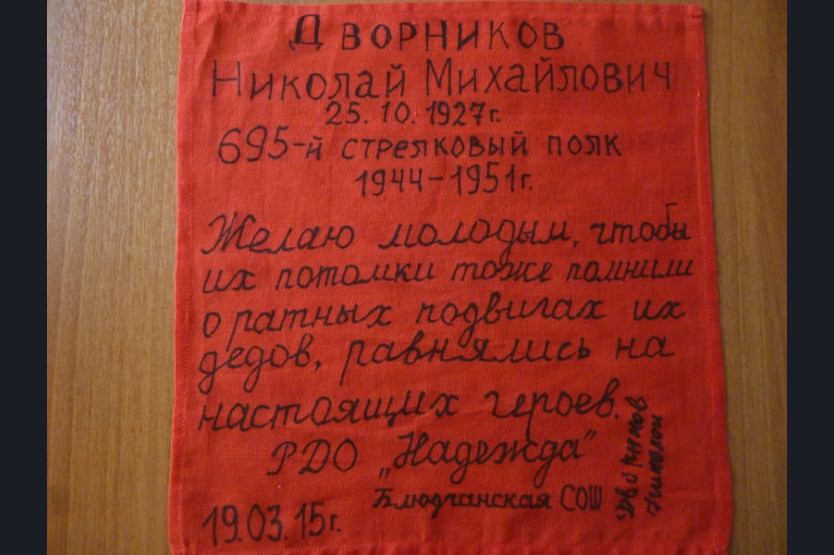 Дворников
Николай Михайлович
25.10.1927г.
695-й стрелковый полк
1944-1951г.
Желаю молодым, чтобы
их потомки тоже помнили
о ратных подвигах их
дедов, равнялись на
настоящих героев.
РДО „Надежда"
Блюдчанская СОШ
19.03.15г.
Николай